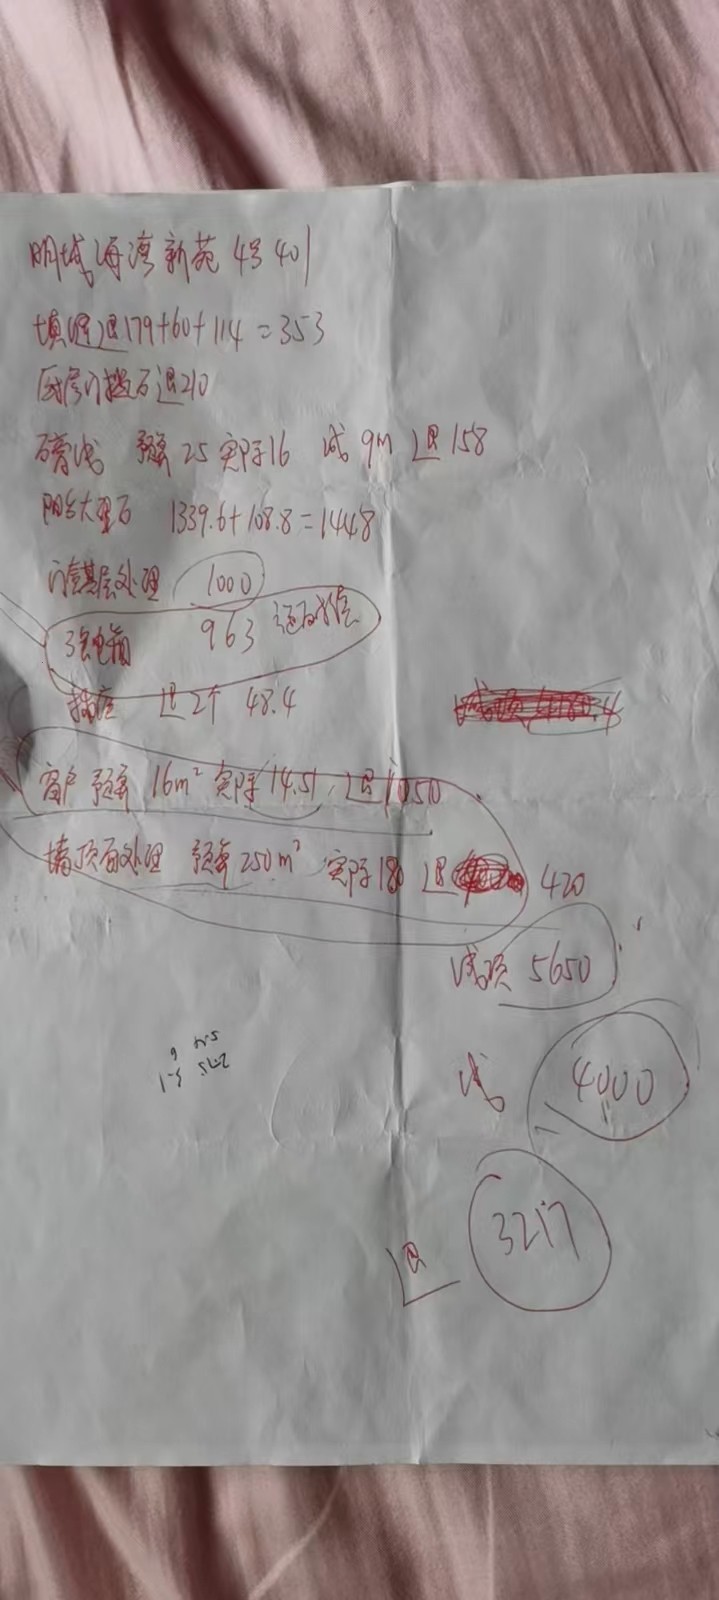 明城海湾新苑 4号401
填 退179+60+114=353
厨房门槛石退210
石膏线 预算25 实际16 减9m 退158
阳台大理石 1339.6+108.8=1448
门套基层处理 1000
强电箱 963
插座 退2个 48.4
窗户 预算16m² 实际14.51 退1050
墙顶面处理 预算250m² 实际180 退 420
减项 5650
减 4000
退 3217